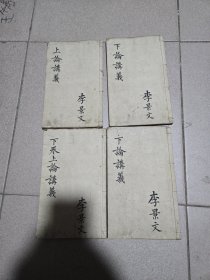 上論講義
李景文
下論講義
李景文
下承上論講義
李景文
下論講義
李景文